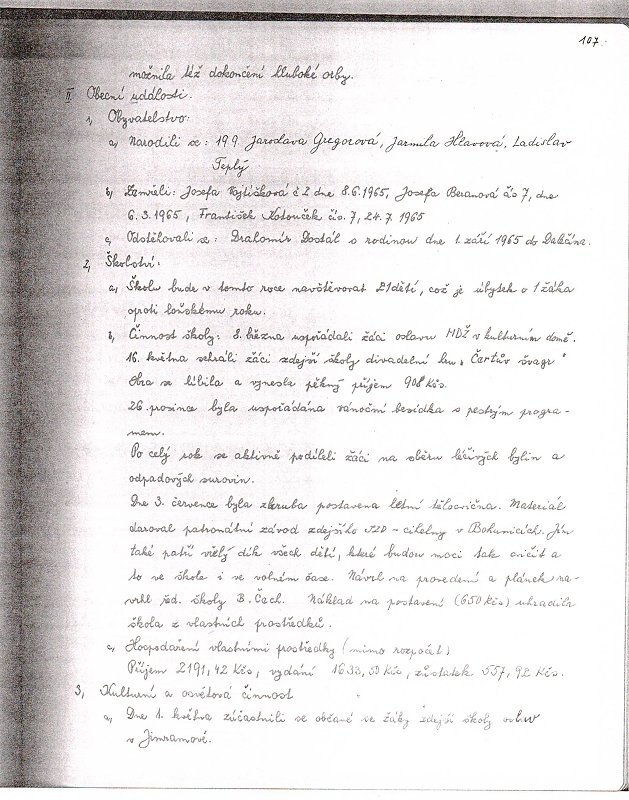 107
možnila též dokončení hluboké orby.
II. Obecní události.
1, Obyvatelstvo:
a, Narodili se: 199 Jaroslava Gregorová, Jarmila Hlavová, Ladislav
Teplý
b, Zemřeli: Josefa Vojtíčková č 2 dne 8.6.1965, Josefa Beranová čís 7, dne
6. 3. 1965, František Kotouček čís. 7, 24. 7. 1965
c, Odstěhovali se: Drahomír Dostál s rodinou dne 1. září 1965 do Dalečína.
2, Školství:
a, Školu bude v tomto roce navštěvovat 21 dětí, což je úbytek o 1 žáka
oproti loňskému roku.
b, Činnost školy: 8. března uspořádali žáci oslavu MDŽ v kulturním domě.
16. května sehráli žáci zdejší školy divadelní hru „Čertův švagr"
Hra se líbila a vynesla pěkný příjem 908 Kčs.
26. prosince byla uspořádána vánoční besídka s pestrým progra-
mem.
Po celý rok se aktivně podíleli žáci na sběru léčivých bylin a
odpadových surovin.
Dne 3. července byla zhruba postavena letní tělocvična. Materiál
daroval patronátní závod zdejšího - cihelny v Bohunicích. Jim
také patří vřelý dík všech dětí, které budou moci tak cvičit a
to ve škole i ve volném čase. Návrh na provedení a plánek na-
vrhl řed. školy B. Čech. Náklad na postavení (650 Kčs) uhradila
škola z vlastních prostředků.
c, Hospodaření vlastními prostředky (mimo rozpočet)
Příjem 2191,42 Kčs, vydání 1633,50 Kčs, zůstatek 557,92 Kčs.
3, Kulturní a osvětová činnost
a, Dne 1. května zúčastnili se občané se žáky zdejší školy oslav
v Jimramově.